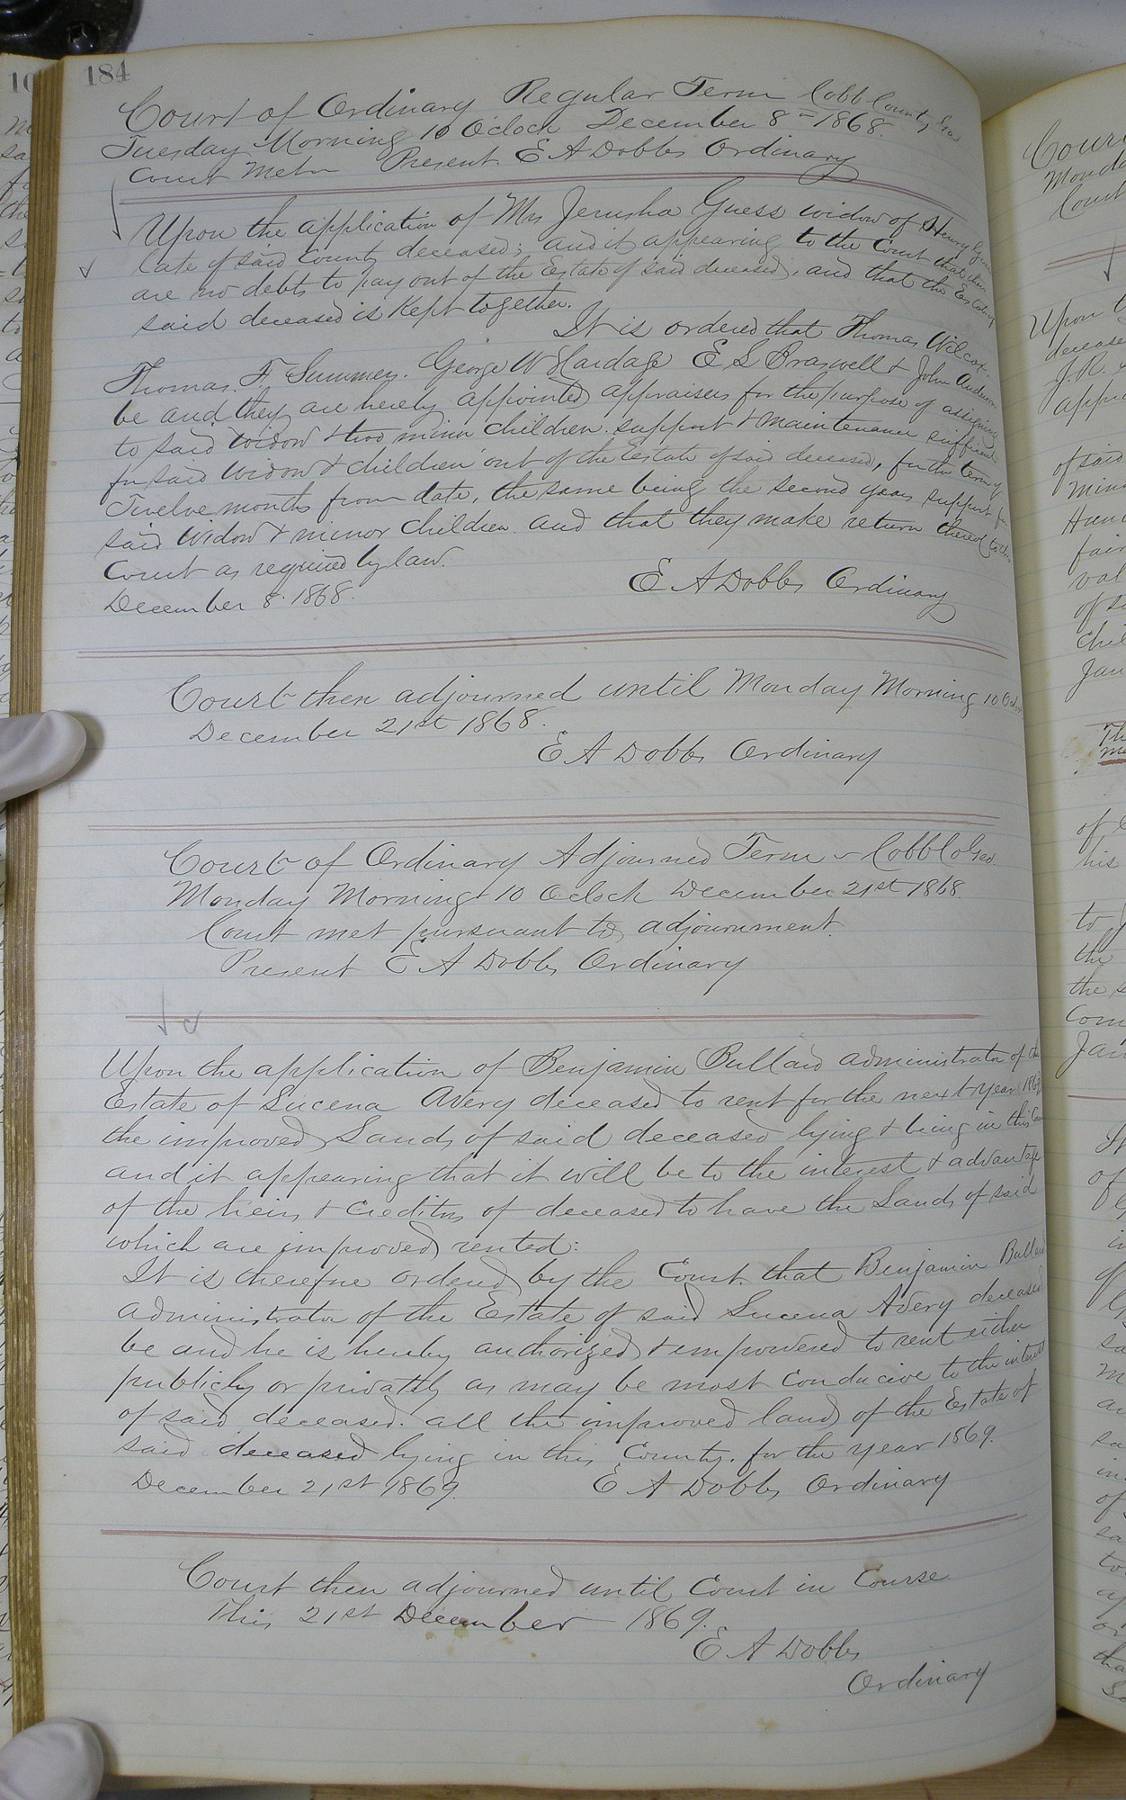 184
Court of Ordinary Regular Term Cobb County Geo
Tuesday Morning 10 Oclock December 8th 1868
Court Met Present E A Dobbs Ordinary
Upon the application of Mrs Jerusha Guess widow of Henry Guess
late of said County deceased; and it appearing to the Court that there
are no debts to pay out of the Estate of said deceased, and that the Estate of
said deceased is Kept together.
It is ordered that Thomas Wilcox
Thomas. F. Summers. George W Hardage E S Braswell & John Anderson
be and they are hereby appointed appraisers for the purpose of assigning
to said Widow & two minor children. support & maintenance sufficient
for said Widow & children out of the Estate of said deceased, for the term of
Twelve months from date, the same being the second years support for
said Widow & minor children and that they make return thereof to this
Court as required by law.
December 8. 1868. E A Dobbs Ordinary
Court then adjourned until Monday Morning 10 Oclock
December 21st 1868.
E A Dobbs Ordinary
Court of Ordinary Adjourned Term Cobb Co Geo
Monday Morning 10 Oclock December 21st 1868.
Court met pursuant to adjournment.
Present E A Dobbs Ordinary
Upon the application of Benjamin Bullard administrator of the
Estate of Lucena Avery deceased to rent for the next year 1869
the improved Lands of said deceased lying & being in this
and it appearing that it will be to the interest & advantage
of the heirs & Creditors of deceased to have the Lands of said
which are improved rented:
It is therefore ordered by the Court that Benjamin Bullard
administrator of the Estate of said Lucena Avery deceased
be and he is hereby authorized & empowered to rent either
publicly or privately as may be most conducive to the interest
of said deceased. all the improved land of the Estate of
said deceased lying in this County. for the year 1869.
December 21st 1869. E A Dobbs Ordinary
Court then adjourned until Court in Course
This 21st December 1869.
E A Dobbs
Ordinary